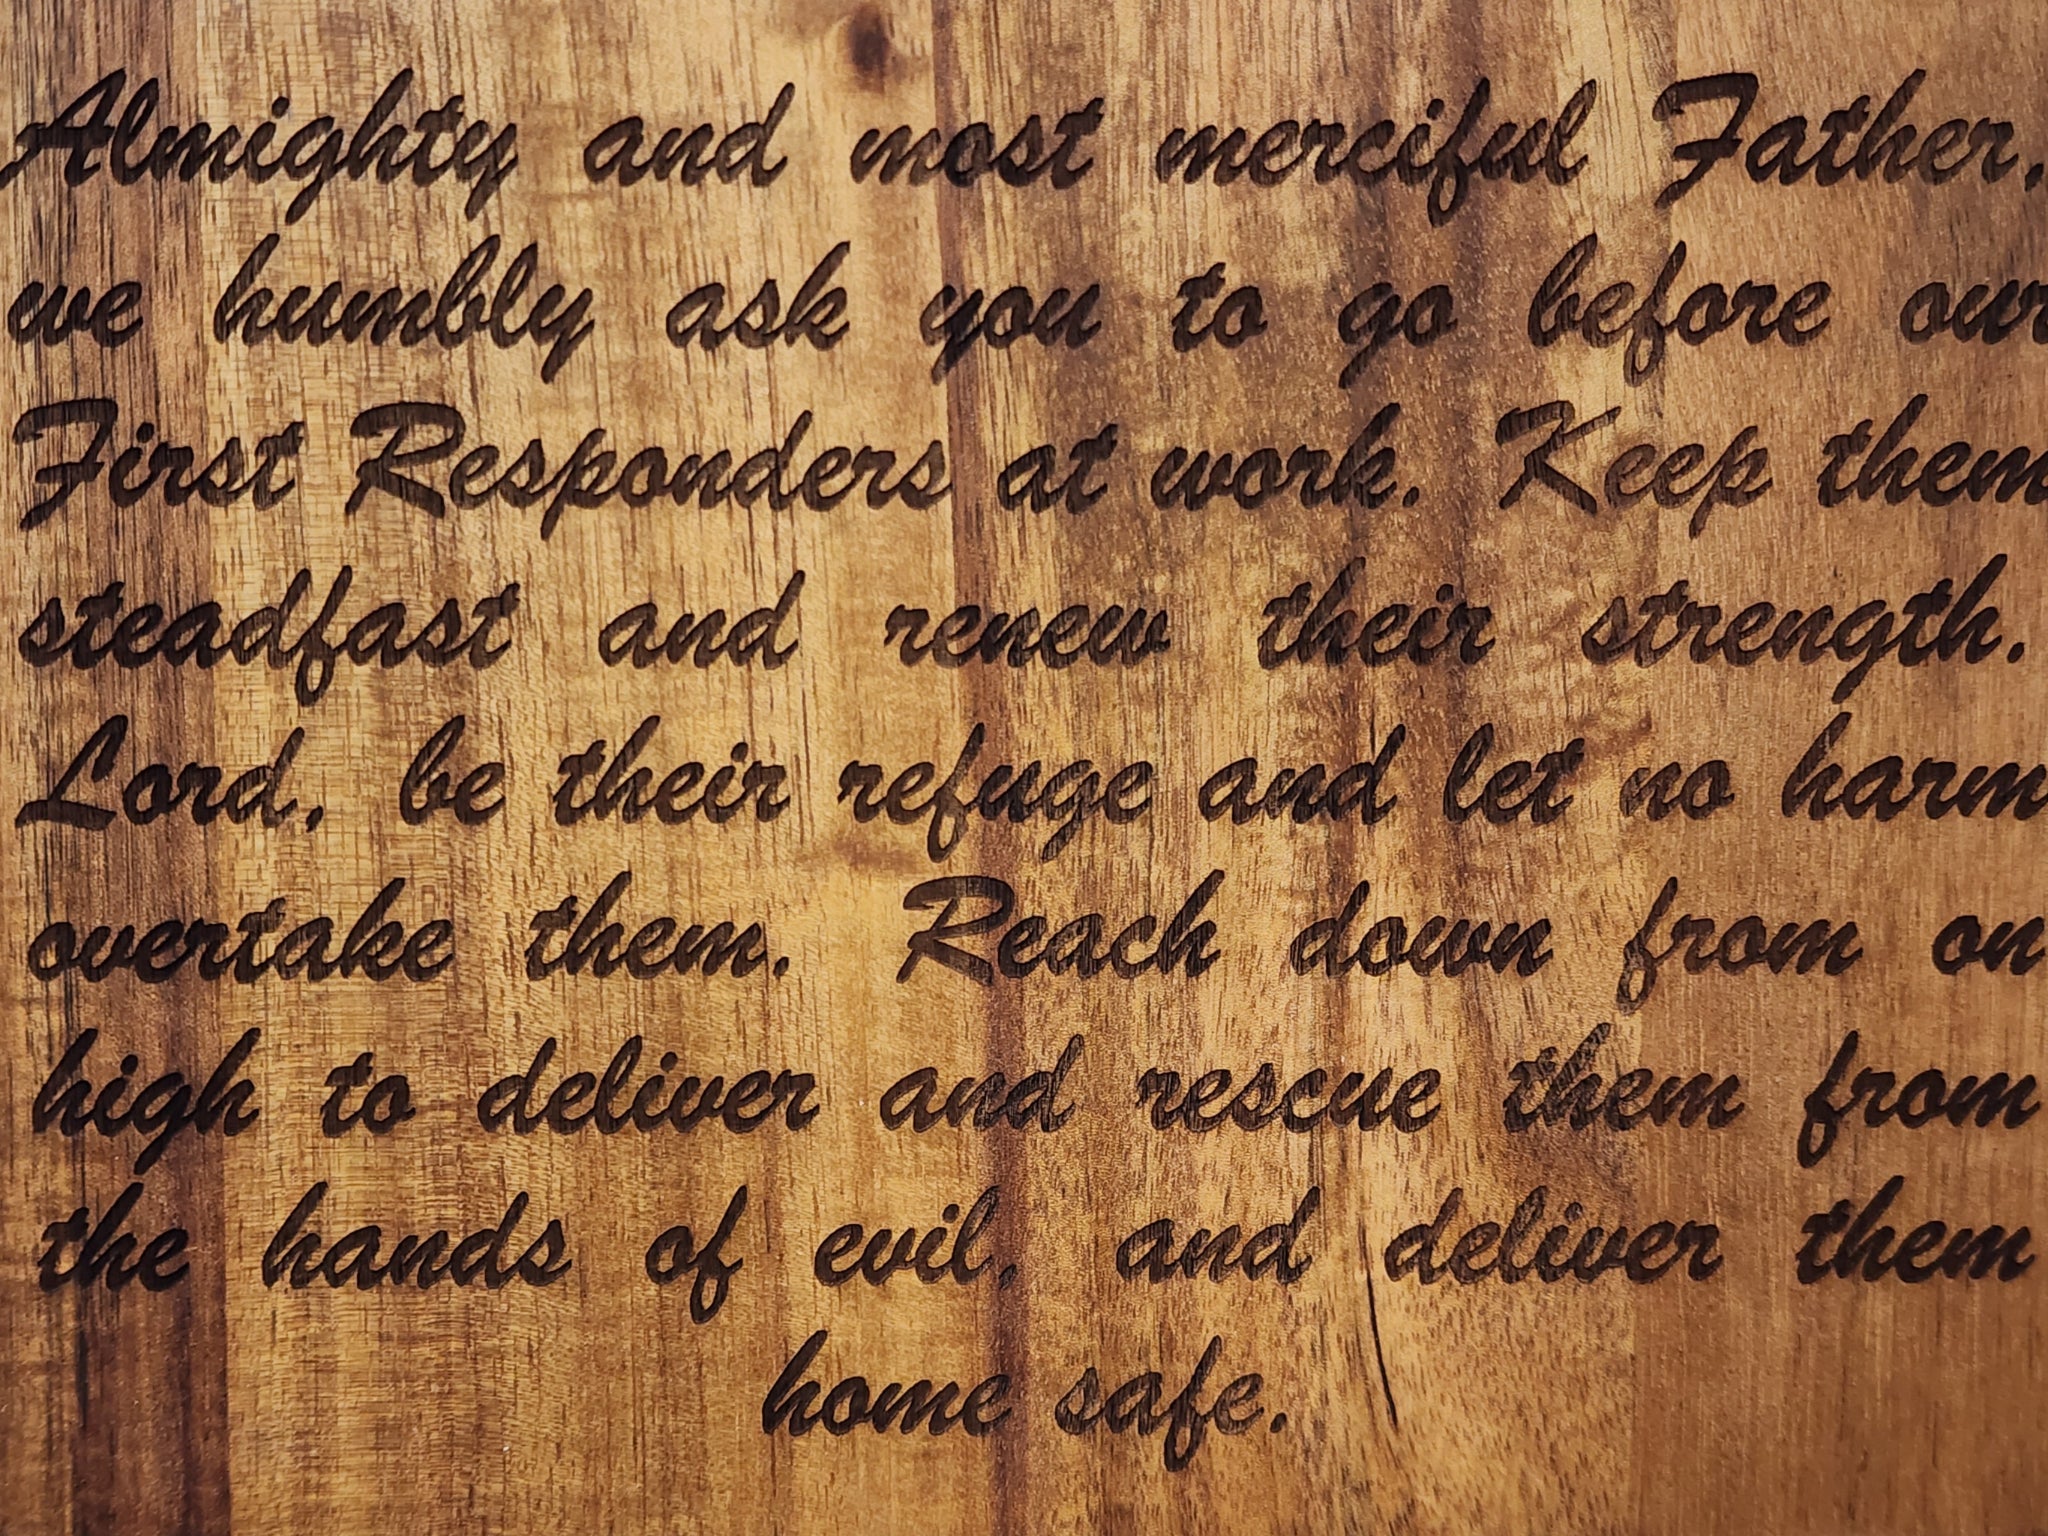 Almighty and most merciful Father,
we humbly ask you to go before our
First Responders at work. Keep them
steadfast and renew their strength.
Lord, be their refuge and let no harm
overtake them. Reach down from on
high to deliver and rescue them from
the hands of evil, and deliver them
home safe.